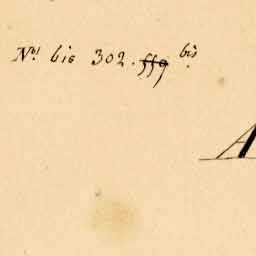 No! bis 302. 559 bis
A